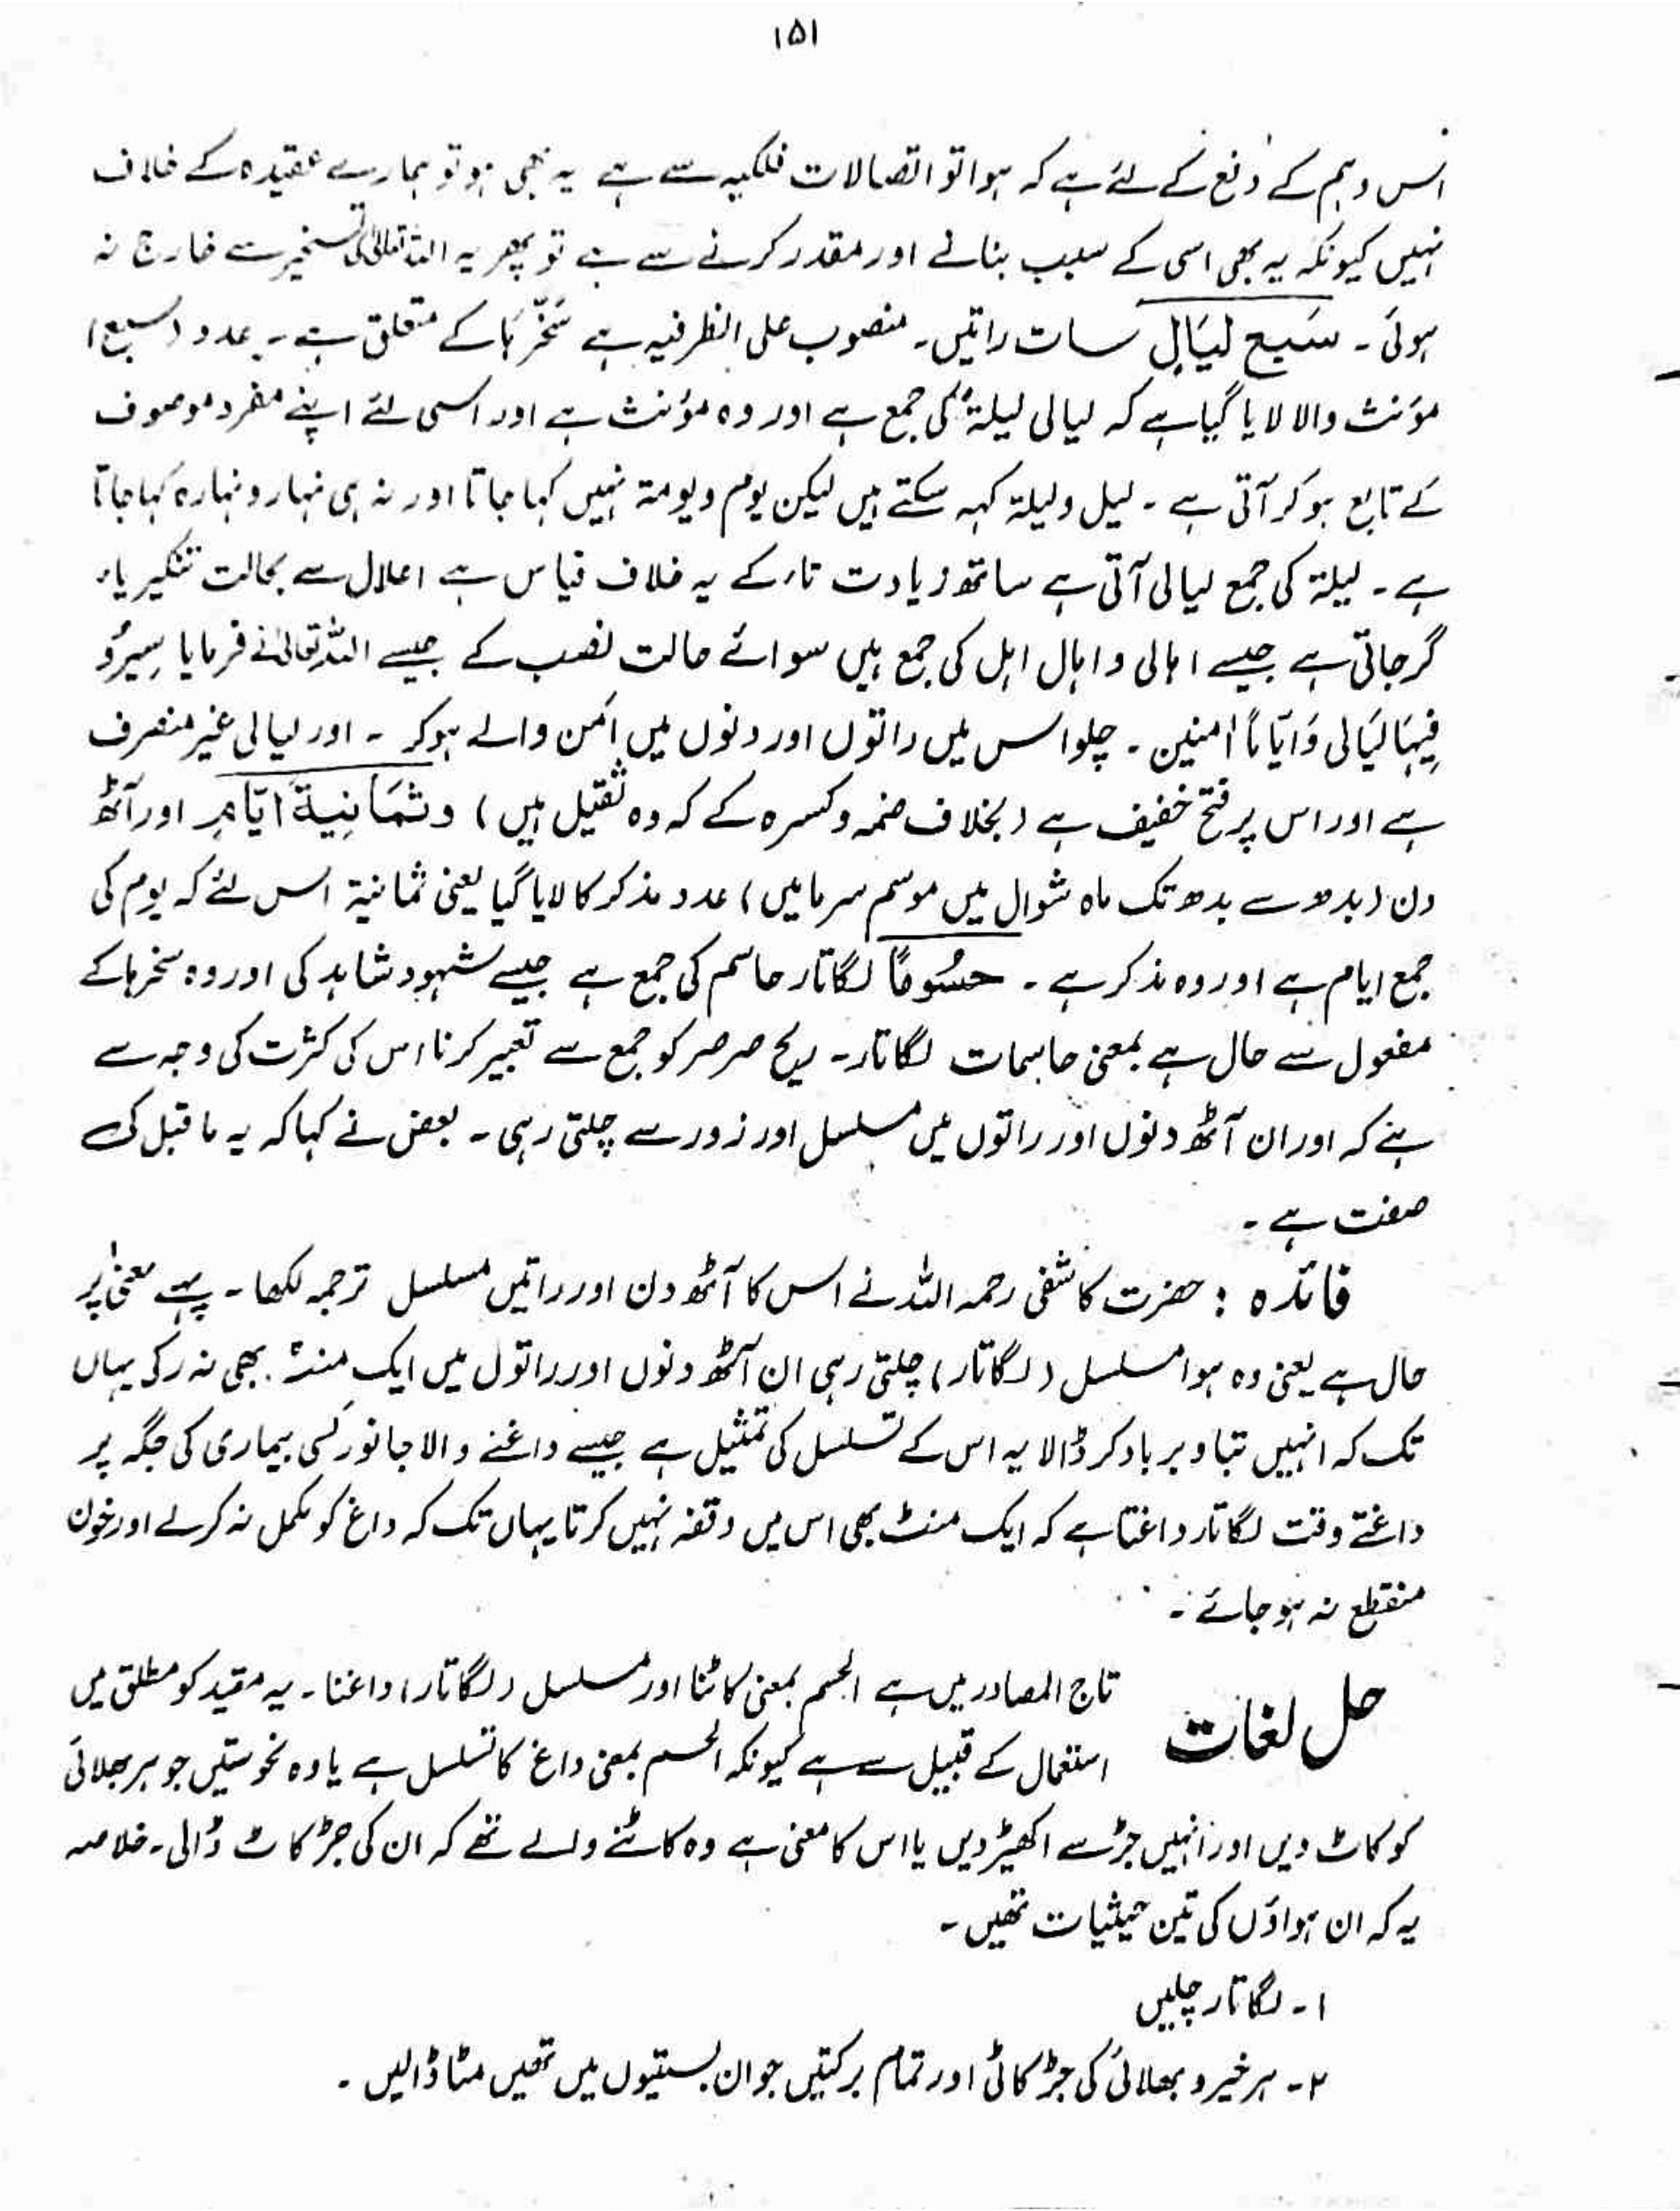 ۱۵۱
اس وہم کے دفع کے لئے ہے کہ ہوا تو اتصالات فلکیہ سے ہے یہ بھی ہو تو ہمارے عقیدہ کے خلاف
نہیں کیونکہ یہ بھی اسی کے سبب بنانے اور مقدر کرنے سے ہے تو پھر یہ اللہ تعالیٰ کی تسخیر سے خارج نہ
ہوئی ۔ سَبع لیَالٍ سات راتیں ۔ منصوب علی الظرفیہ ہے سَخَّرَہَا کے متعلق ہے ۔ عدد (سبع)
مؤنث والا لایا گیا ہے کہ لیالی لیلۃ کی جمع ہے اور وہ مؤنث ہے اور اسی لئے اپنے مفرد موصوف
کے تابع ہو کر آتی ہے ۔ لیل ولیلۃ کہہ سکتے ہیں لیکن یوم ویومۃ نہیں کہا جاتا اور نہ ہی نہار و نہارہ کہا جاتا
ہے ۔ لیلۃ کی جمع لیالی آتی ہے ساتھ زیادت تاء کے یہ خلاف قیاس ہے اعلال سے بحالت تنکیر یاء
گر جاتی ہے جیسے اہالی و اہال اہل کی جمع ہیں سوائے حالت نصب کے جیسے اللہ تعالیٰ نے فرمایا سِیرُو
فِیہَا لَیَالی وَاَیَّامًا اٰمنین ۔ چلو اس میں راتوں اور دنوں میں امن والے ہوکر ۔ اور لیالی غیر منصرف
ہے اور اس پر فتح خفیف ہے (بخلاف ضمہ و کسرہ کے کہ وہ ثقیل ہیں) وثَمَانِیۃَ اَیَّامٍ اور آٹھ
دن (بدھ سے بدھ تک ماہ شوال میں موسم سرما میں) عدد مذکر کا لایا گیا یعنی ثمانیۃ اس لئے کہ یوم کی
جمع ایام ہے اور وہ مذکر ہے ۔ حسُومًا لگاتار حاسم کی جمع ہے جیسے شہود شاہد کی اور وہ سخرہا کے
مفعول سے حال ہے بمعنی حاسمات لگاتار ۔ ریح صرصر کو جمع سے تعبیر کرنا اس کی کثرت کی وجہ سے
ہے کہ اور ان آٹھ دنوں اور راتوں میں مسلسل اور زور سے چلتی رہی ۔ بعض نے کہا کہ یہ ماقبل کی
صفت ہے ۔
فائدہ : حضرت کاشفی رحمہ اللہ نے اس کا آٹھ دن اور راتیں مسلسل ترجمہ لکھا ۔ پہلے معنیٰ پر
حال ہے یعنی وہ ہوا مسلسل (لگاتار) چلتی رہی ان آٹھ دنوں اور راتوں میں ایک منٹ بھی نہ رکی یہاں
تک کہ انہیں تباہ و برباد کر ڈالا یہ اس کے تسلسل کی تمثیل ہے جیسے داغنے والا جانور کسی بیماری کی جگہ پر
داغتے وقت لگاتار داغتا ہے کہ ایک منٹ بھی اس میں وقفہ نہیں کرتا یہاں تک کہ داغ کو مکمل نہ کرلے اور خون
منقطع نہ ہو جائے ۔
حل لغات
تاج المصادر میں ہے الحسم بمعنی کاٹنا اور مسلسل (لگاتار) داغنا ۔ یہ مقید کو مطلق میں
استعمال کے قبیل سے ہے کیونکہ الحسم بمعنی داغ کا تسلسل ہے یا وہ نحوستیں جو ہر بھلائی
کو کاٹ دیں اور انہیں جڑ سے اکھیڑ دیں یا اس کا معنی ہے وہ کاٹنے والے تھے کہ ان کی جڑ کاٹ ڈالی ۔ خلاصہ
یہ کہ ان ہواؤں کی تین حیثیات تھیں ۔
۱ ۔ لگاتار چلیں
۲ ۔ ہر خیر و بھلائی کی جڑ کاٹی اور تمام برکتیں جو ان بستیوں میں تھیں مٹا ڈالیں ۔